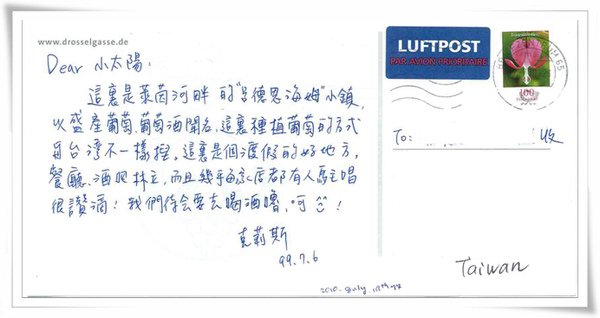 www.drosselgasse.de
Dear 小太陽:
這裏是萊茵河畔的"呂德思海姆"小鎮,
以盛產葡萄,葡萄酒聞名,這裏種植葡萄的方式
與台灣不一樣捏,這裏是個渡假的好地方,
餐廳、酒吧林立,而且幾乎每家店都有人駐唱
很讚滴!我們待會要去喝酒嚕,呵^^!
克莉斯
99.7.6
LUFTPOST
PAR AVION PRIORITAIRE
100
65
To:
收
Taiwan
2010. July